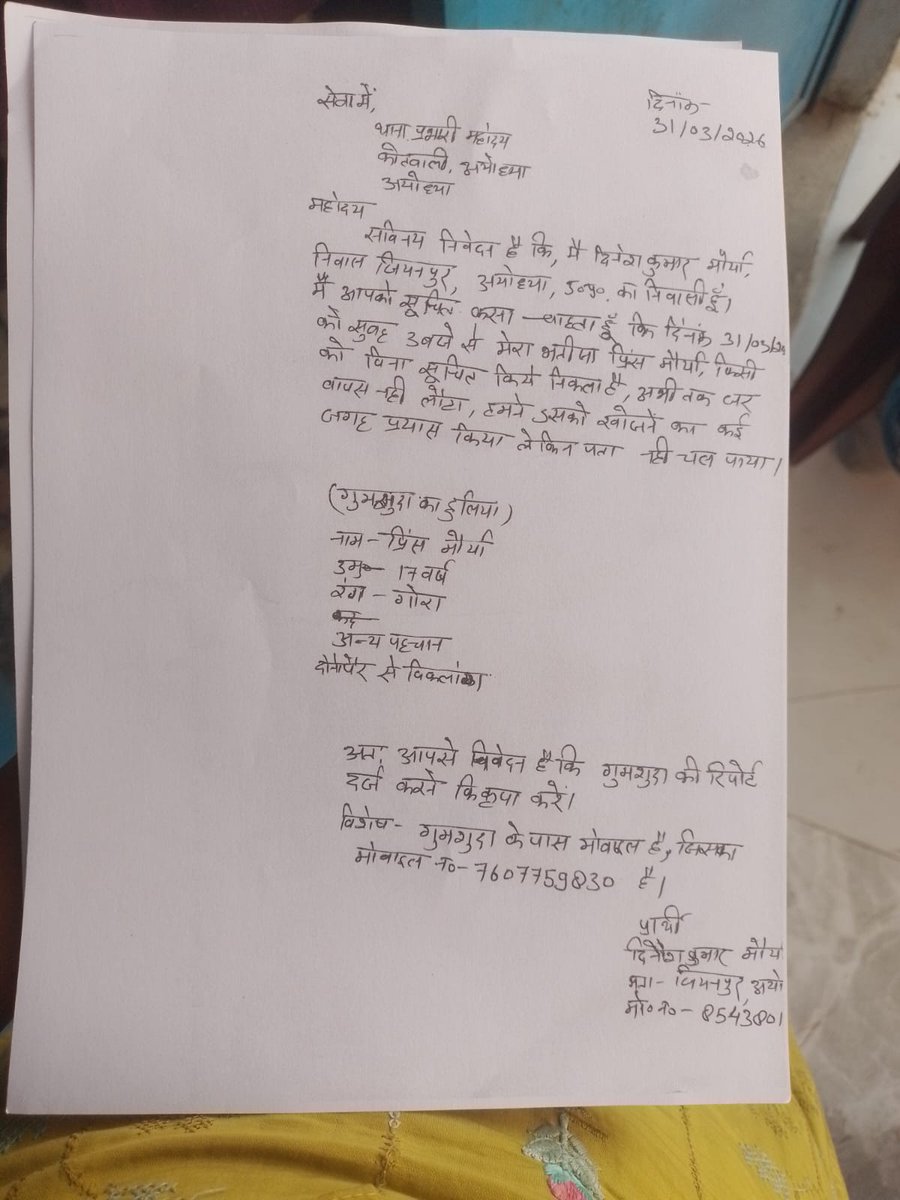 सेवा में,
दिनांक-
31/03/2026
थाना प्रभारी महोदय
कोतवाली, अयोध्या
अयोध्या
महोदय
सविनय निवेदन है कि, मैं दिनेश कुमार मौर्या,
निवास जियनपुर, अयोध्या, उ०प्र०. का निवासी हूँ।
मैं आपको सूचित करना चाहता हूँ कि दिनांक 31/03/26
को सुबह 3 बजे से मेरा भतीजा प्रिंस मौर्या, किसी
को बिना सूचित किये निकला है, अभी तक घर
वापस नही लौटा, हमने उसको खोजने का कई
जगह प्रयास किया लेकिन पता नही चल पाया।
(गुमशुदा का हुलिया)
नाम - प्रिंस मौर्या
उम्र - 17 वर्ष
रंग - गोरा
अन्य पहचान
दोनो पैर से विकलांग।
अतः आपसे निवेदन है कि गुमशुदा की रिपोर्ट
दर्ज करने कि कृपा करें।
विशेष - गुमशुदा के पास मोबाइल है, जिसका
मोबाइल न०- 7607759830 है।
प्रार्थी
दिनेश कुमार मौर्य
पता - जियनपुर, अयो
मो० न० - 8543801